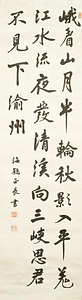 峨眉山月半輪秋影入平羌
江水流夜發清溪向三峽思君
不見下渝州
書